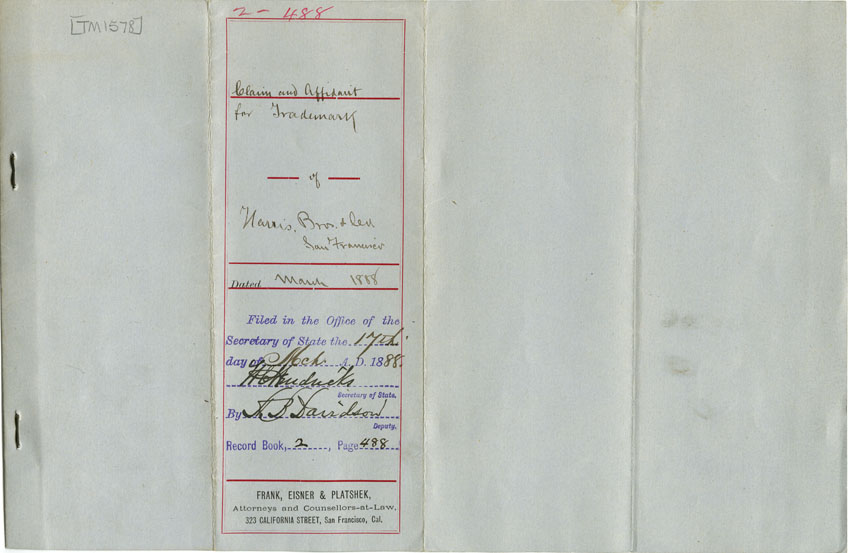 [TM1578]
2 - 488
Claim and Affidavit
for Trademark
of
Harris, Bros. & Co
San Francisco
Dated March 1888
Filed in the Office of the
Secretary of State the 17th
day of Mch. A. D. 1888.
Hendricks
Secretary of State.
By Davidson
Deputy.
Record Book, 2, Page 488
FRANK, EISNER & PLATSHEK,
Attorneys and Counsellors-at-Law,
323 CALIFORNIA STREET, San Francisco, Cal.